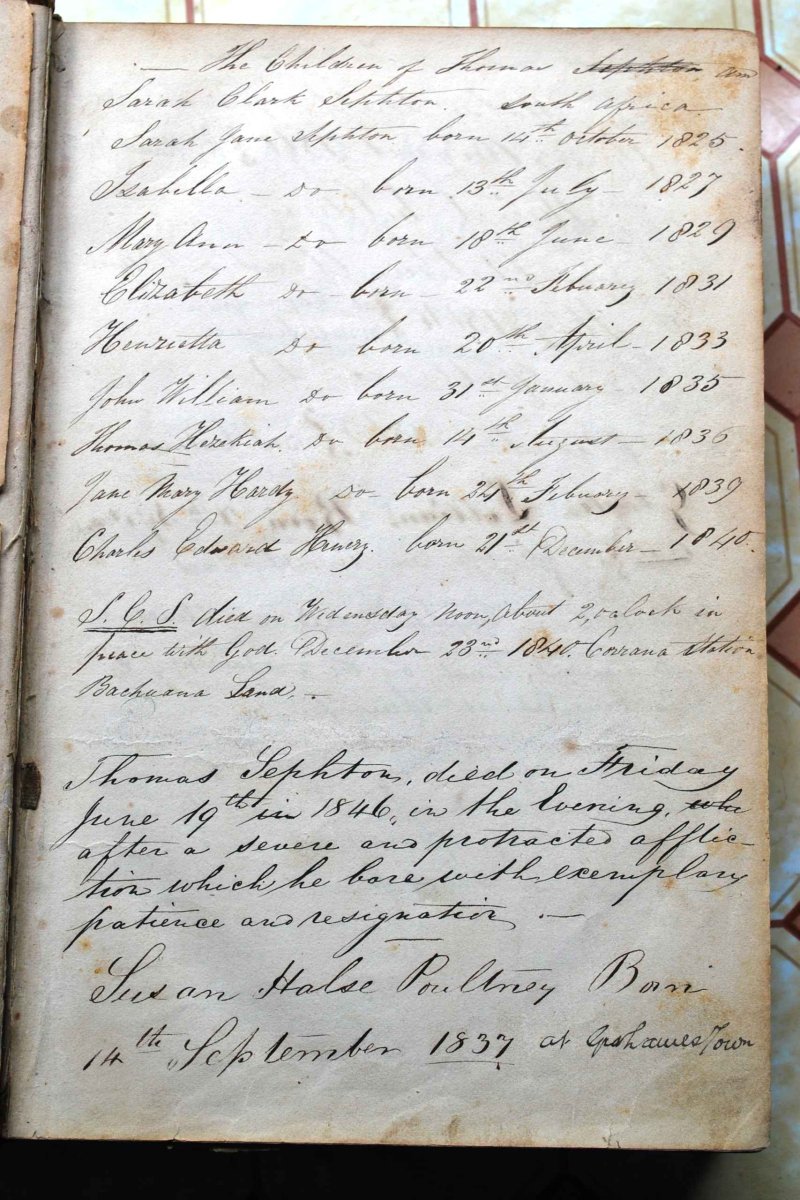 — The Children of Thomas Sephton and
Sarah Clark Sephton. South Africa
Sarah Jane Sephton born 14th October 1825.
Isabella — Do born 13th July — 1827
Mary Ann — Do born 18th June — 1829
Elizabeth Do — born — 22nd Febuary 1831
Henrietta Do born 20th April — 1833
John William Do born 31st January — 1835
Thomas Hezekiah. Do born 14th August — 1836
Jane Mary Hardy Do — born 24th Febuary — 1839
Charles Edward Henery. born 21st December — 1840.
S. C. S. died on Wednesday noon, about 2, oclock in
peace with God. December 23rd 1840. Corrana Station
Bachuana Land. —
Thomas Sephton, died on Friday
June 19th in 1846, in the Evening, who
after a severe and protracted afflic-
tion which he bare with exemplary
patience and resignation. —
Susan Halse Poultney Born
14th September 1837 at